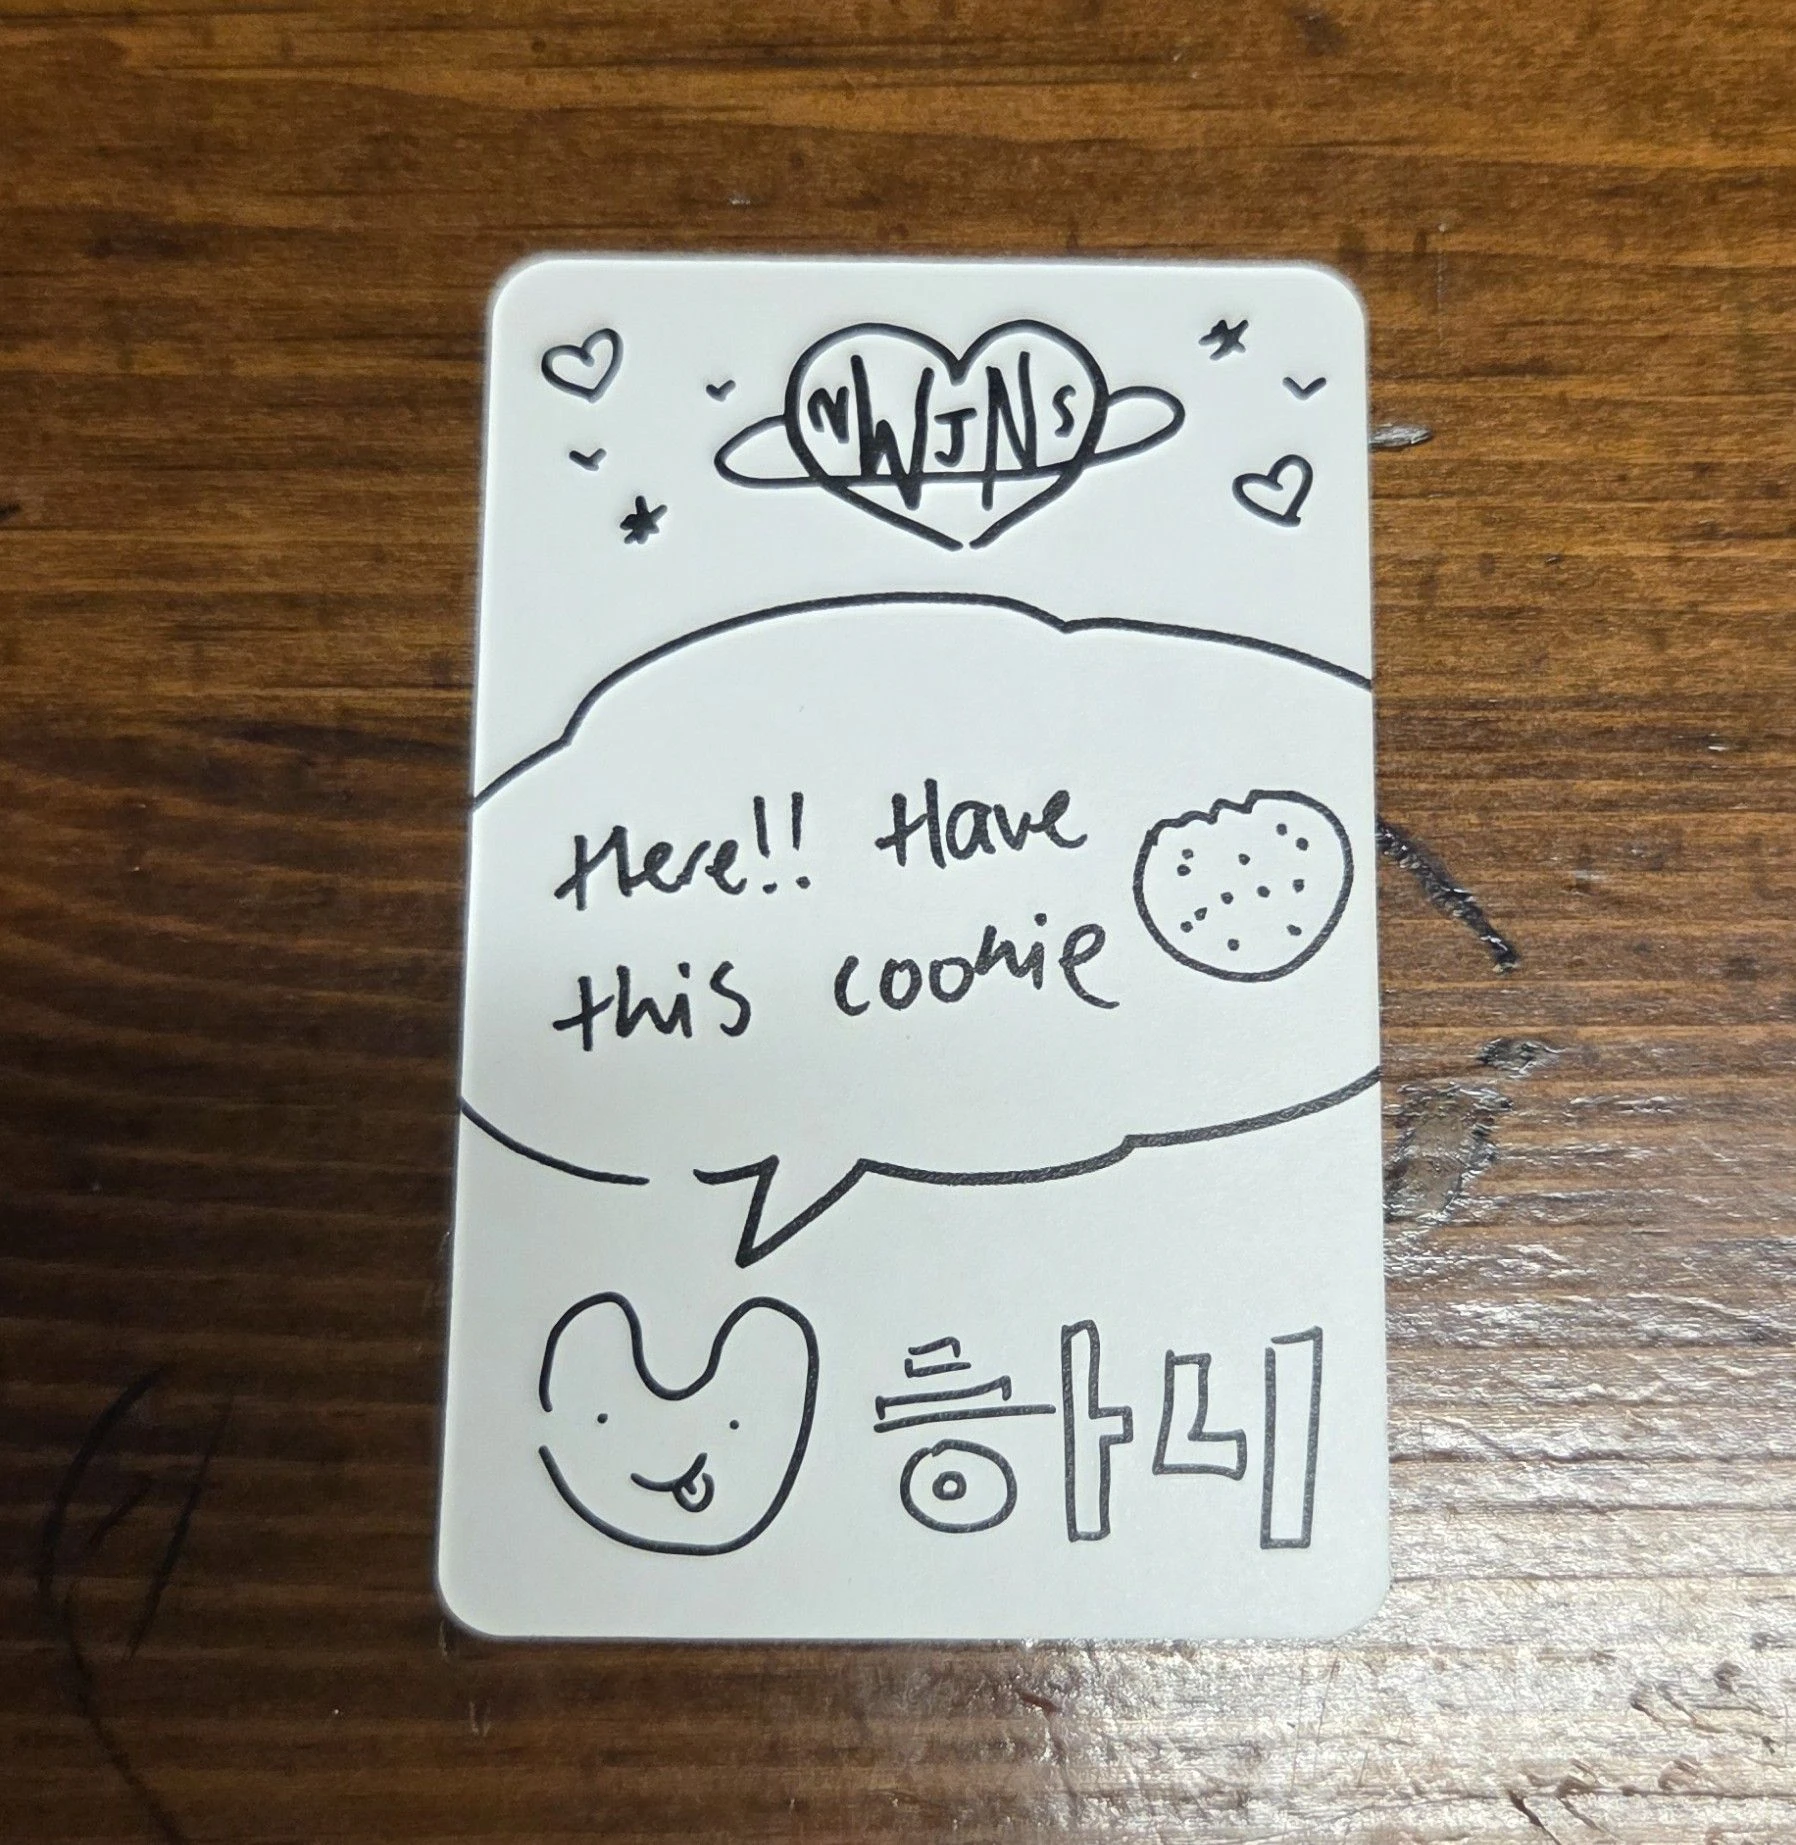 NWJNS
Here!! Have
this cookie
하니